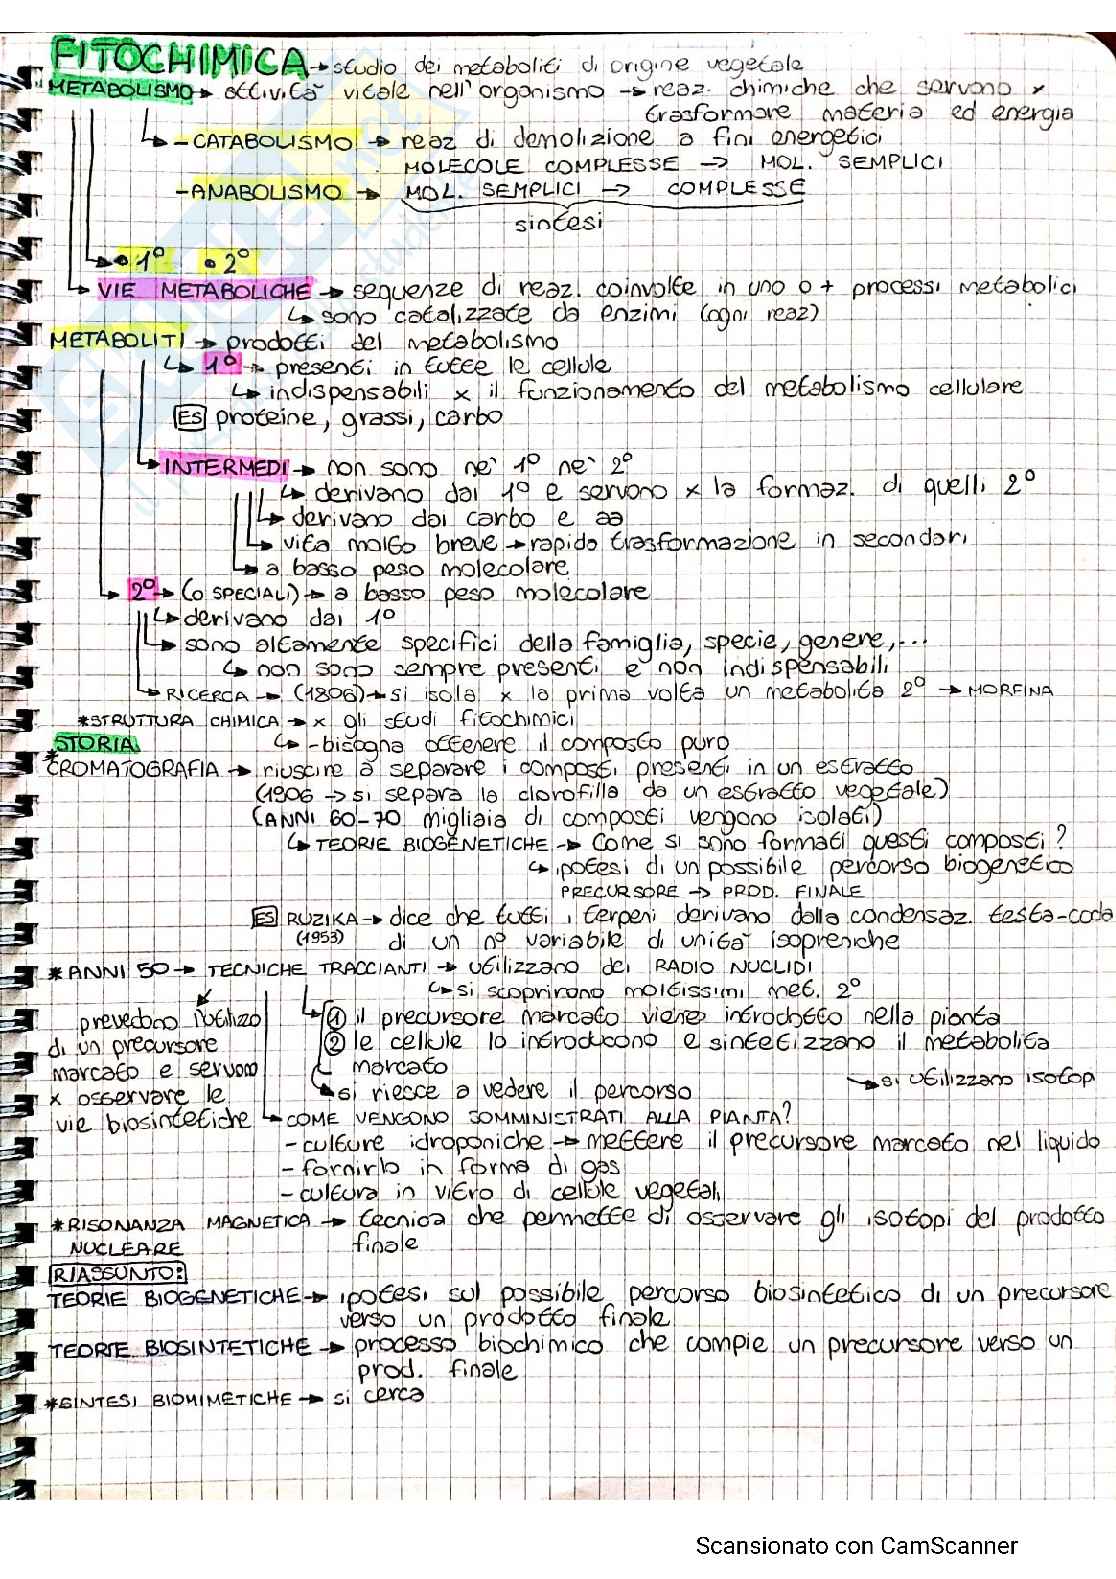 FITOCHIMICA → studio dei metaboliti di origine vegetale
METABOLISMO → attività vitale nell'organismo → reaz. chimiche che servono x
trasformare materia ed energia
↳ - CATABOLISMO → reaz di demolizione a fini energetici
MOLECOLE COMPLESSE → MOL. SEMPLICI
- ANABOLISMO → MOL. SEMPLICI → COMPLESSE
sintesi
• 1° • 2°
↳ VIE METABOLICHE → sequenze di reaz. coinvolte in uno o + processi metabolici
↳ sono catalizzate da enzimi (ogni reaz)
METABOLITI → prodotti del metabolismo
↳ 1° → presenti in tutte le cellule
↳ indispensabili x il funzionamento del metabolismo cellulare
ES proteine, grassi, carbo
↳ INTERMEDI → non sono nè 1° nè 2°
↳ derivano dai 1° e servono x la formaz. di quelli 2°
↳ derivano dai carbo e aa
↳ vita molto breve → rapida trasformazione in secondari
↳ a basso peso molecolare
↳ 2° → (o SPECIALI) → a basso peso molecolare
↳ derivano dai 1°
↳ sono altamente specifici della famiglia, specie, genere,...
↳ non sono sempre presenti e non indispensabili
↳ RICERCA → (1806) → si isola x la prima volta un metabolita 2° → MORFINA
*STRUTTURA CHIMICA → x gli studi fitochimici
STORIA ↳ - bisogna ottenere il composto puro
*CROMATOGRAFIA → riuscire a separare i composti presenti in un estratto
(1906 → si separa la clorofilla da un estratto vegetale)
(ANNI 60-70 migliaia di composti vengono isolati)
↳ TEORIE BIOGENETICHE → Come si sono formati questi composti?
↳ ipotesi di un possibile percorso biogenetico
PRECURSORE → PROD. FINALE
ES RUZIKA → dice che tutti i terpeni derivano dalla condensaz. testa-coda
(1953) di un n° variabile di unità isopreniche
*ANNI 50 → TECNICHE TRACCIANTI → utilizzano dei RADIO NUCLIDI
↳ si scoprirono moltissimi met. 2°
prevedono l'utilizo
di un precursore
marcato e servono
x osservare le
vie biosintetiche
↳ ① il precursore marcato viene introdotto nella pianta
② le cellule lo introducono e sintetizzano il metabolita
marcato
→ si utilizzano isotopi
↳ si riesce a vedere il percorso
↳ COME VENGONO SOMMINISTRATI ALLA PIANTA?
- culture idroponiche → mettere il precursore marcato nel liquido
- fornirlo in forma di gas
- cultura in vitro di cellule vegetali
*RISONANZA MAGNETICA → tecnica che permette di osservare gli isotopi del prodotto
NUCLEARE finale
RIASSUNTO:
TEORIE BIOGENETICHE → ipotesi sul possibile percorso biosintetico di un precursore
verso un prodotto finale
TEORIE BIOSINTETICHE → processo biochimico che compie un precursore verso un
prod. finale
*SINTESI BIOMIMETICHE → si cerca
Scansionato con CamScanner